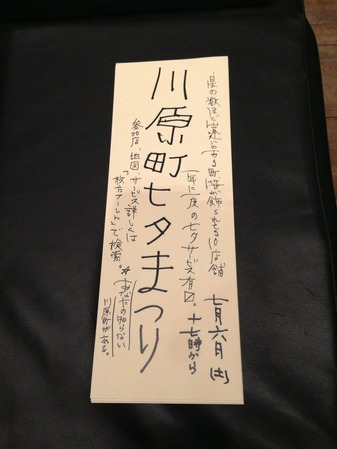 の数ほど のある が飾られる10店舗
一年に一度の七夕サービス有〼。十七時から
七月六月(土)
川原町七夕まつり
参加店、地図、サービス詳しくは
「枚方アーしん」で検索。☆
あなたの知らない
川原町がある。